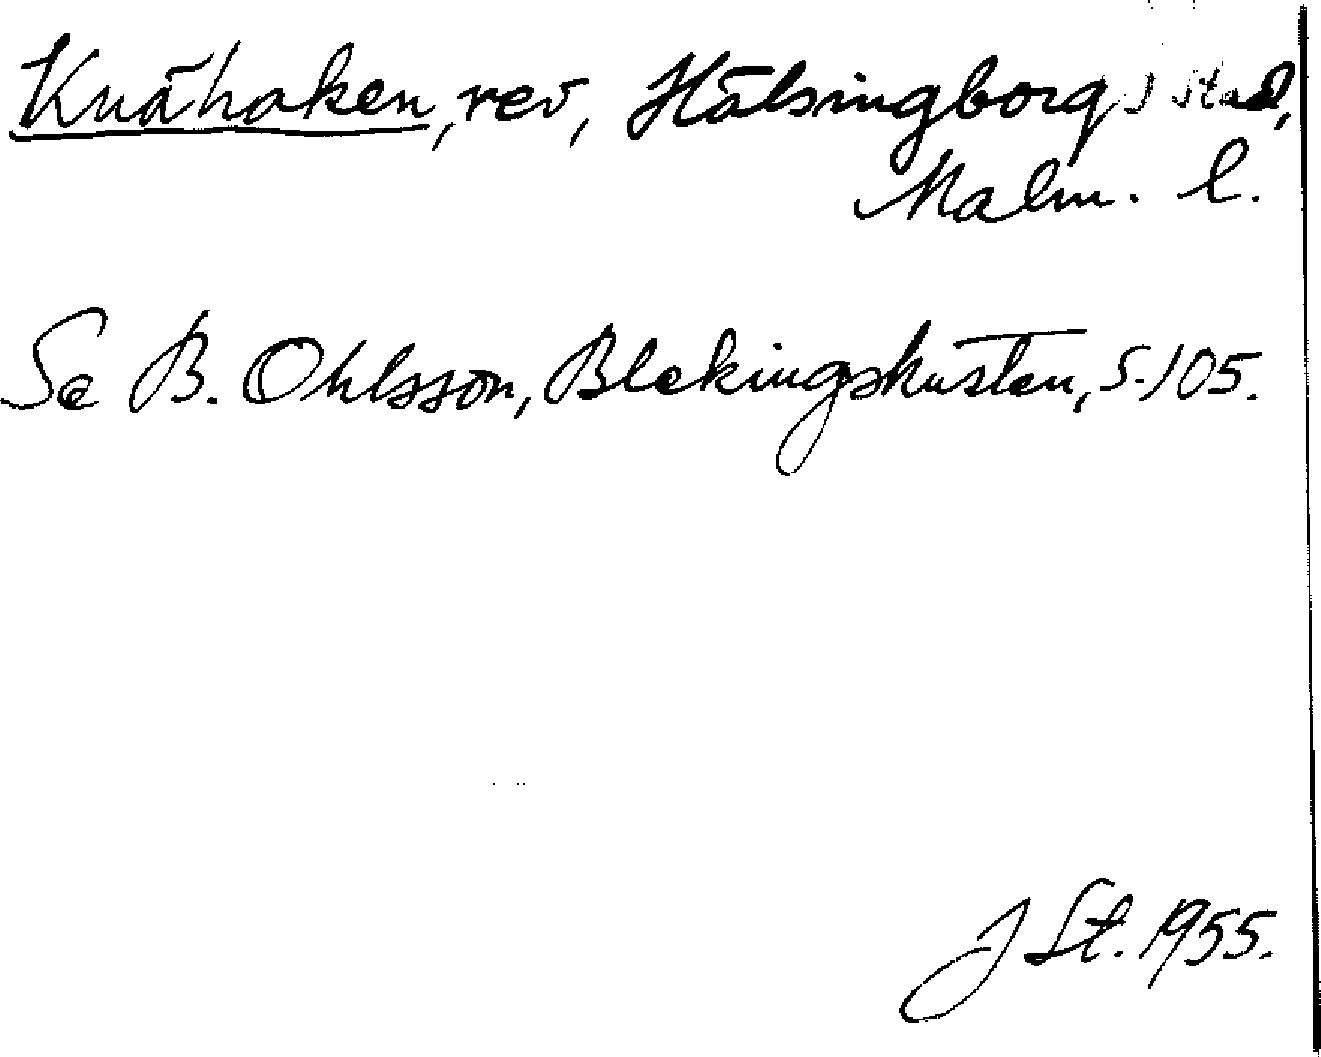 Knähaken, rev, Hälsingborgs stad,
Malm. l.
Se B. Ohlsson, Blekingskusten, s. 105.
J St. 1955.